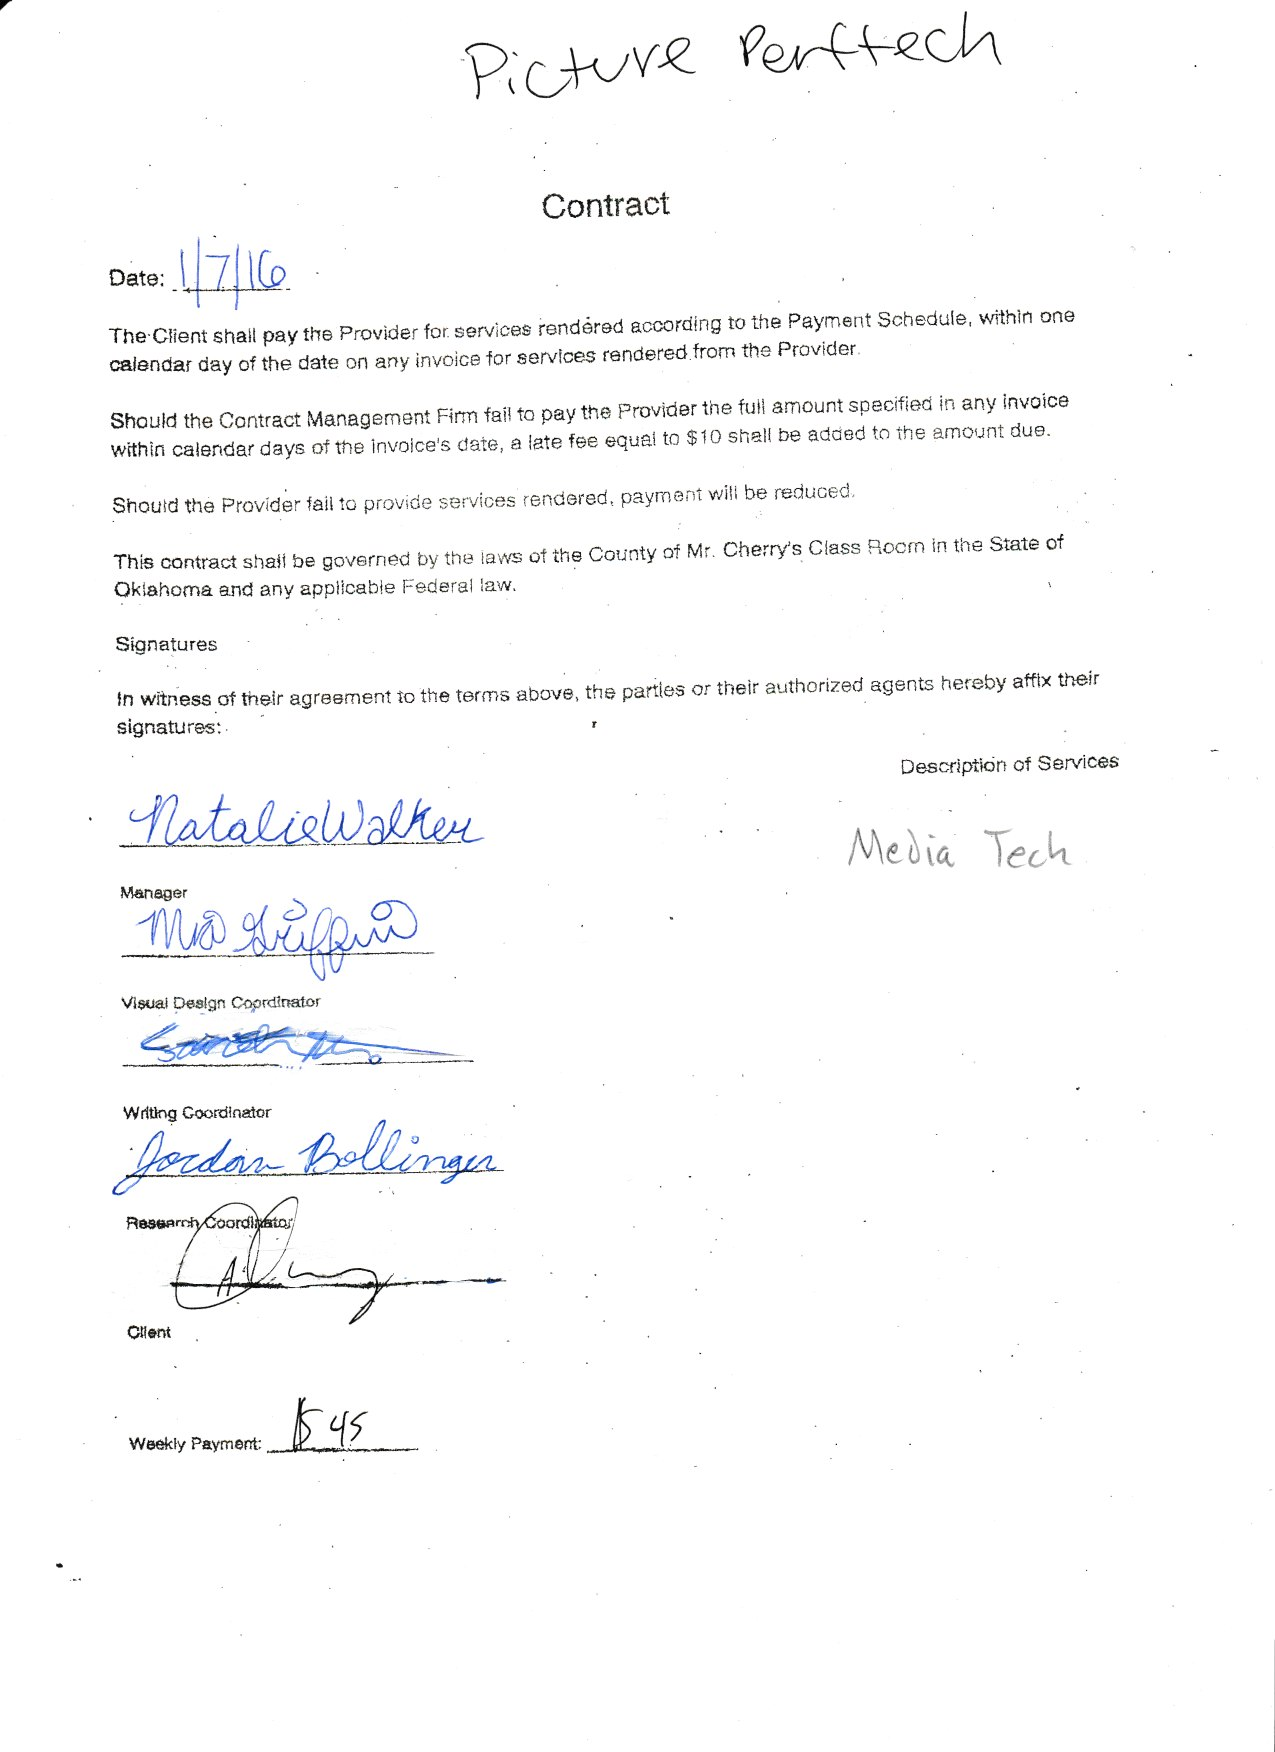 Picture Perftech
Contract
Date: 1/7/16
The Client shall pay the Provider for services rendered according to the Payment Schedule, within one
calendar day of the date on any invoice for services rendered from the Provider.
Should the Contract Management Firm fail to pay the Provider the full amount specified in any invoice
within calendar days of the invoice's date, a late fee equal to $10 shall be added to the amount due.
Should the Provider fail to provide services rendered, payment will be reduced.
This contract shall be governed by the laws of the County of Mr. Cherry's Class Room in the State of
Oklahoma and any applicable Federal law.
Signatures
In witness of their agreement to the terms above, the parties or their authorized agents hereby affix their
signatures:
Description of Services
Natalie Walker
Media Tech
Manager
Mia Griffin
Visual Design Coordinator
Writing Coordinator
Jordan Bollinger
Research Coordinator
Client
Weekly Payment: $45